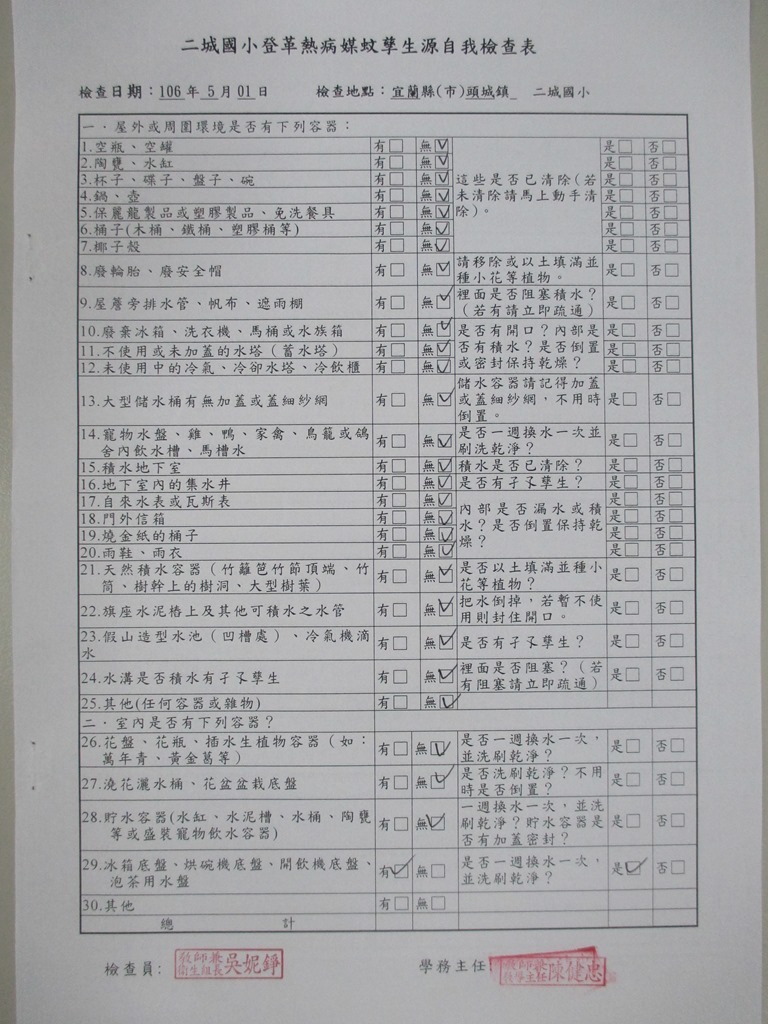 二城國小登革熱病媒蚊孳生源自我檢查表
檢查日期：106 年 5 月 01 日 檢查地點：宜蘭縣(市)頭城鎮_ 二城國小
一．屋外或周圍環境是否有下列容器：
1.空瓶、空罐 有□ 無☑ 是□ 否□
2.陶甕、水缸 有□ 無☑ 是□ 否□
3.杯子、碟子、盤子、碗 有□ 無☑ 這些是否已清除(若 是□ 否□
4.鍋、壺 有□ 無☑ 未清除請馬上動手清 是□ 否□
5.保麗龍製品或塑膠製品、免洗餐具 有□ 無☑ 除)。 是□ 否□
6.桶子(木桶、鐵桶、塑膠桶等) 有□ 無☑ 是□ 否□
7.椰子殼 有□ 無☑ 是□ 否□
8.廢輪胎、廢安全帽 有□ 無☑ 請移除或以土填滿並 是□ 否□
種小花等植物。
9.屋簷旁排水管、帆布、遮雨棚 有□ 無☑ 裡面是否阻塞積水？ 是□ 否□
（若有請立即疏通）
10.廢棄冰箱、洗衣機、馬桶或水族箱 有□ 無☑ 是否有開口？內部是 是□ 否□
11.不使用或未加蓋的水塔（蓄水塔） 有□ 無☑ 否有積水？是否倒置 是□ 否□
12.未使用中的冷氣、冷卻水塔、冷飲櫃 有□ 無☑ 或密封保持乾燥？ 是□ 否□
13.大型儲水桶有無加蓋或蓋細紗網 有□ 無☑ 儲水容器請記得加蓋 是□ 否□
或蓋細紗網，不用時
倒置。
14.寵物水盤、雞、鴨、家禽、鳥籠或鴿 有□ 無☑ 是否一週換水一次並 是□ 否□
舍內飲水槽、馬槽水 刷洗乾淨？
15.積水地下室 有□ 無☑ 積水是否已清除？ 是□ 否□
16.地下室內的集水井 有□ 無☑ 是否有孑孓孳生？ 是□ 否□
17.自來水表或瓦斯表 有□ 無☑ 是□ 否□
18.門外信箱 有□ 無☑ 內部是否漏水或積 是□ 否□
19.燒金紙的桶子 有□ 無☑ 水？是否倒置保持乾 是□ 否□
20.雨鞋、雨衣 有□ 無☑ 燥？ 是□ 否□
21.天然積水容器（竹籬笆竹節頂端、竹 有□ 無☑ 是否以土填滿並種小 是□ 否□
筒、樹幹上的樹洞、大型樹葉） 花等植物？
22.旗座水泥樁上及其他可積水之水管 有□ 無☑ 把水倒掉，若暫不使 是□ 否□
用則封住開口。
23.假山造型水池（凹槽處）、冷氣機滴 有□ 無☑ 是否有孑孓孳生？ 是□ 否□
水
24.水溝是否積水有孑孓孳生 有□ 無☑ 裡面是否阻塞？（若 是□ 否□
有阻塞請立即疏通）
25.其他(任何容器或雜物) 有□ 無☑
二．室內是否有下列容器？
26.花盤、花瓶、插水生植物容器（如： 有□ 無☑ 是否一週換水一次， 是□ 否□
萬年青、黃金葛等） 並洗刷乾淨？
27.澆花灑水桶、花盆盆栽底盤 有□ 無☑ 是否洗刷乾淨？不用 是□ 否□
時是否倒置？
28.貯水容器(水缸、水泥槽、水桶、陶甕 有□ 無☑ 一週換水一次，並洗 是□ 否□
等或盛裝寵物飲水容器) 刷乾淨？貯水容器是
否有加蓋密封？
29.冰箱底盤、烘碗機底盤、開飲機底盤、 有☑ 無□ 是否一週換水一次， 是☑ 否□
泡茶用水盤 並洗刷乾淨？
30.其他 有□ 無□
總 計
檢查員： 教師兼衛生組長 吳妮錚 學務主任： 教師兼教學主任 陳健忠